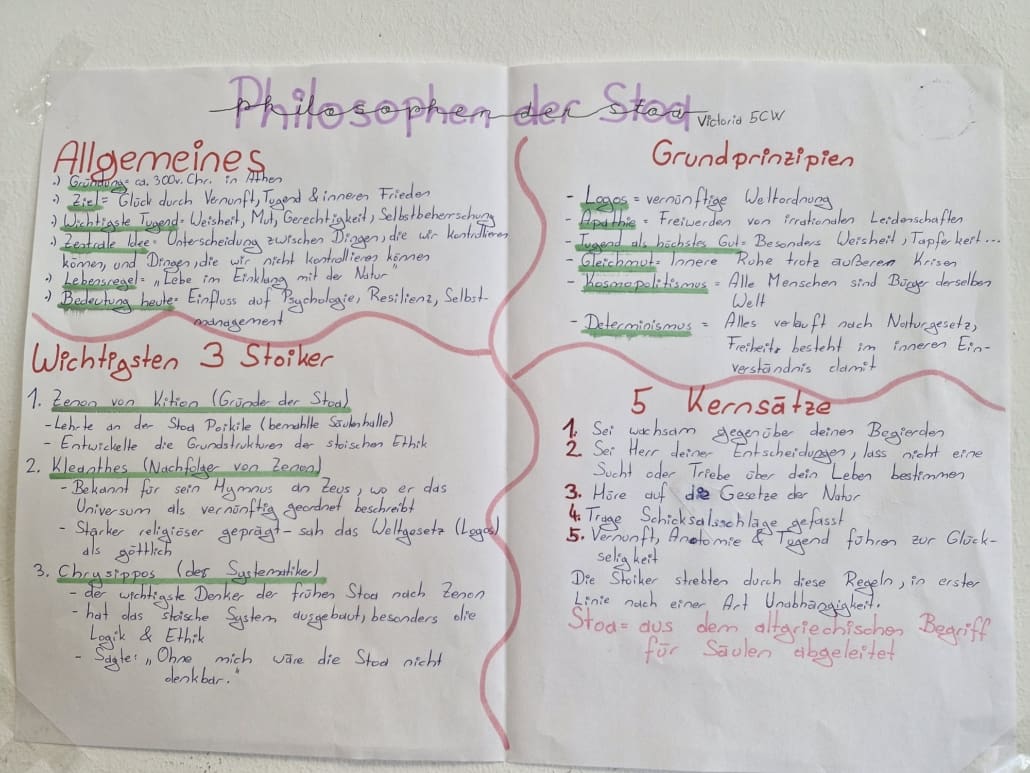 Philosophen der Stoa
Victoria 5CW
Allgemeines
.) Gründung = ca. 300v. Chr. in Athen
.) Ziel = Glück durch Vernunft, Tugend & inneren Frieden
.) Wichtigste Tugend = Weisheit, Mut, Gerechtigkeit, Selbstbeherrschung
.) Zentrale Idee = Unterscheidung zwischen Dingen, die wir kontrollieren
können, und Dingen, die wir nicht kontrollieren können
.) Lebensregel = „Lebe im Einklang mit der Natur"
.) Bedeutung heute = Einfluss auf Psychologie, Resilienz, Selbst-
management
Wichtigsten 3 Stoiker
1. Zenon von Kition (Gründer der Stoa)
- Lehrte an der Stoa Poikile (bemahlte Säulenhalle)
- Entwickelte die Grundstrukturen der stoischen Ethik
2. Kleanthes (Nachfolger von Zenon)
- Bekannt für sein Hymnus an Zeus, wo er das
Universum als vernünftig geordnet beschreibt
- Stärker religiöser geprägt - sah das Weltgesetz (Logos)
als göttlich
3. Chrysippos (der Systematiker)
- der wichtigste Denker der frühen Stoa nach Zenon
- hat das stoische System ausgebaut, besonders die
Logik & Ethik
- Sagte: „Ohne mich wäre die Stoa nicht
denkbar."
Grundprinzipien
- Logos = vernünftige Weltordnung
- Apathie = Freiwerden von irrationalen Leidenschaften
- Tugend als höchstes Gut = Besonders Weisheit, Tapferkeit...
- Gleichmut = Innere Ruhe trotz äußeren Krisen
- Kosmopolitismus = Alle Menschen sind Bürger derselben
Welt
- Determinismus = Alles verläuft nach Naturgesetz,
Freiheits besteht im inneren Ein-
verständnis damit
5 Kernsätze
1. Sei wachsam gegenüber deinen Begierden
2. Sei Herr deiner Entscheidungen, lass nicht eine
Sucht oder Triebe über dein Leben bestimmen
3. Höre auf die Gesetze der Natur
4. Trage Schicksalsschläge gefasst
5. Vernunft, Anatomie & Tugend führen zur Glück-
seligkeit
Die Stoiker strebten durch diese Regeln, in erster
Linie nach einer Art Unabhängigkeit.
Stoa = aus dem altgriechischen Begriff
für Säulen abgeleitet